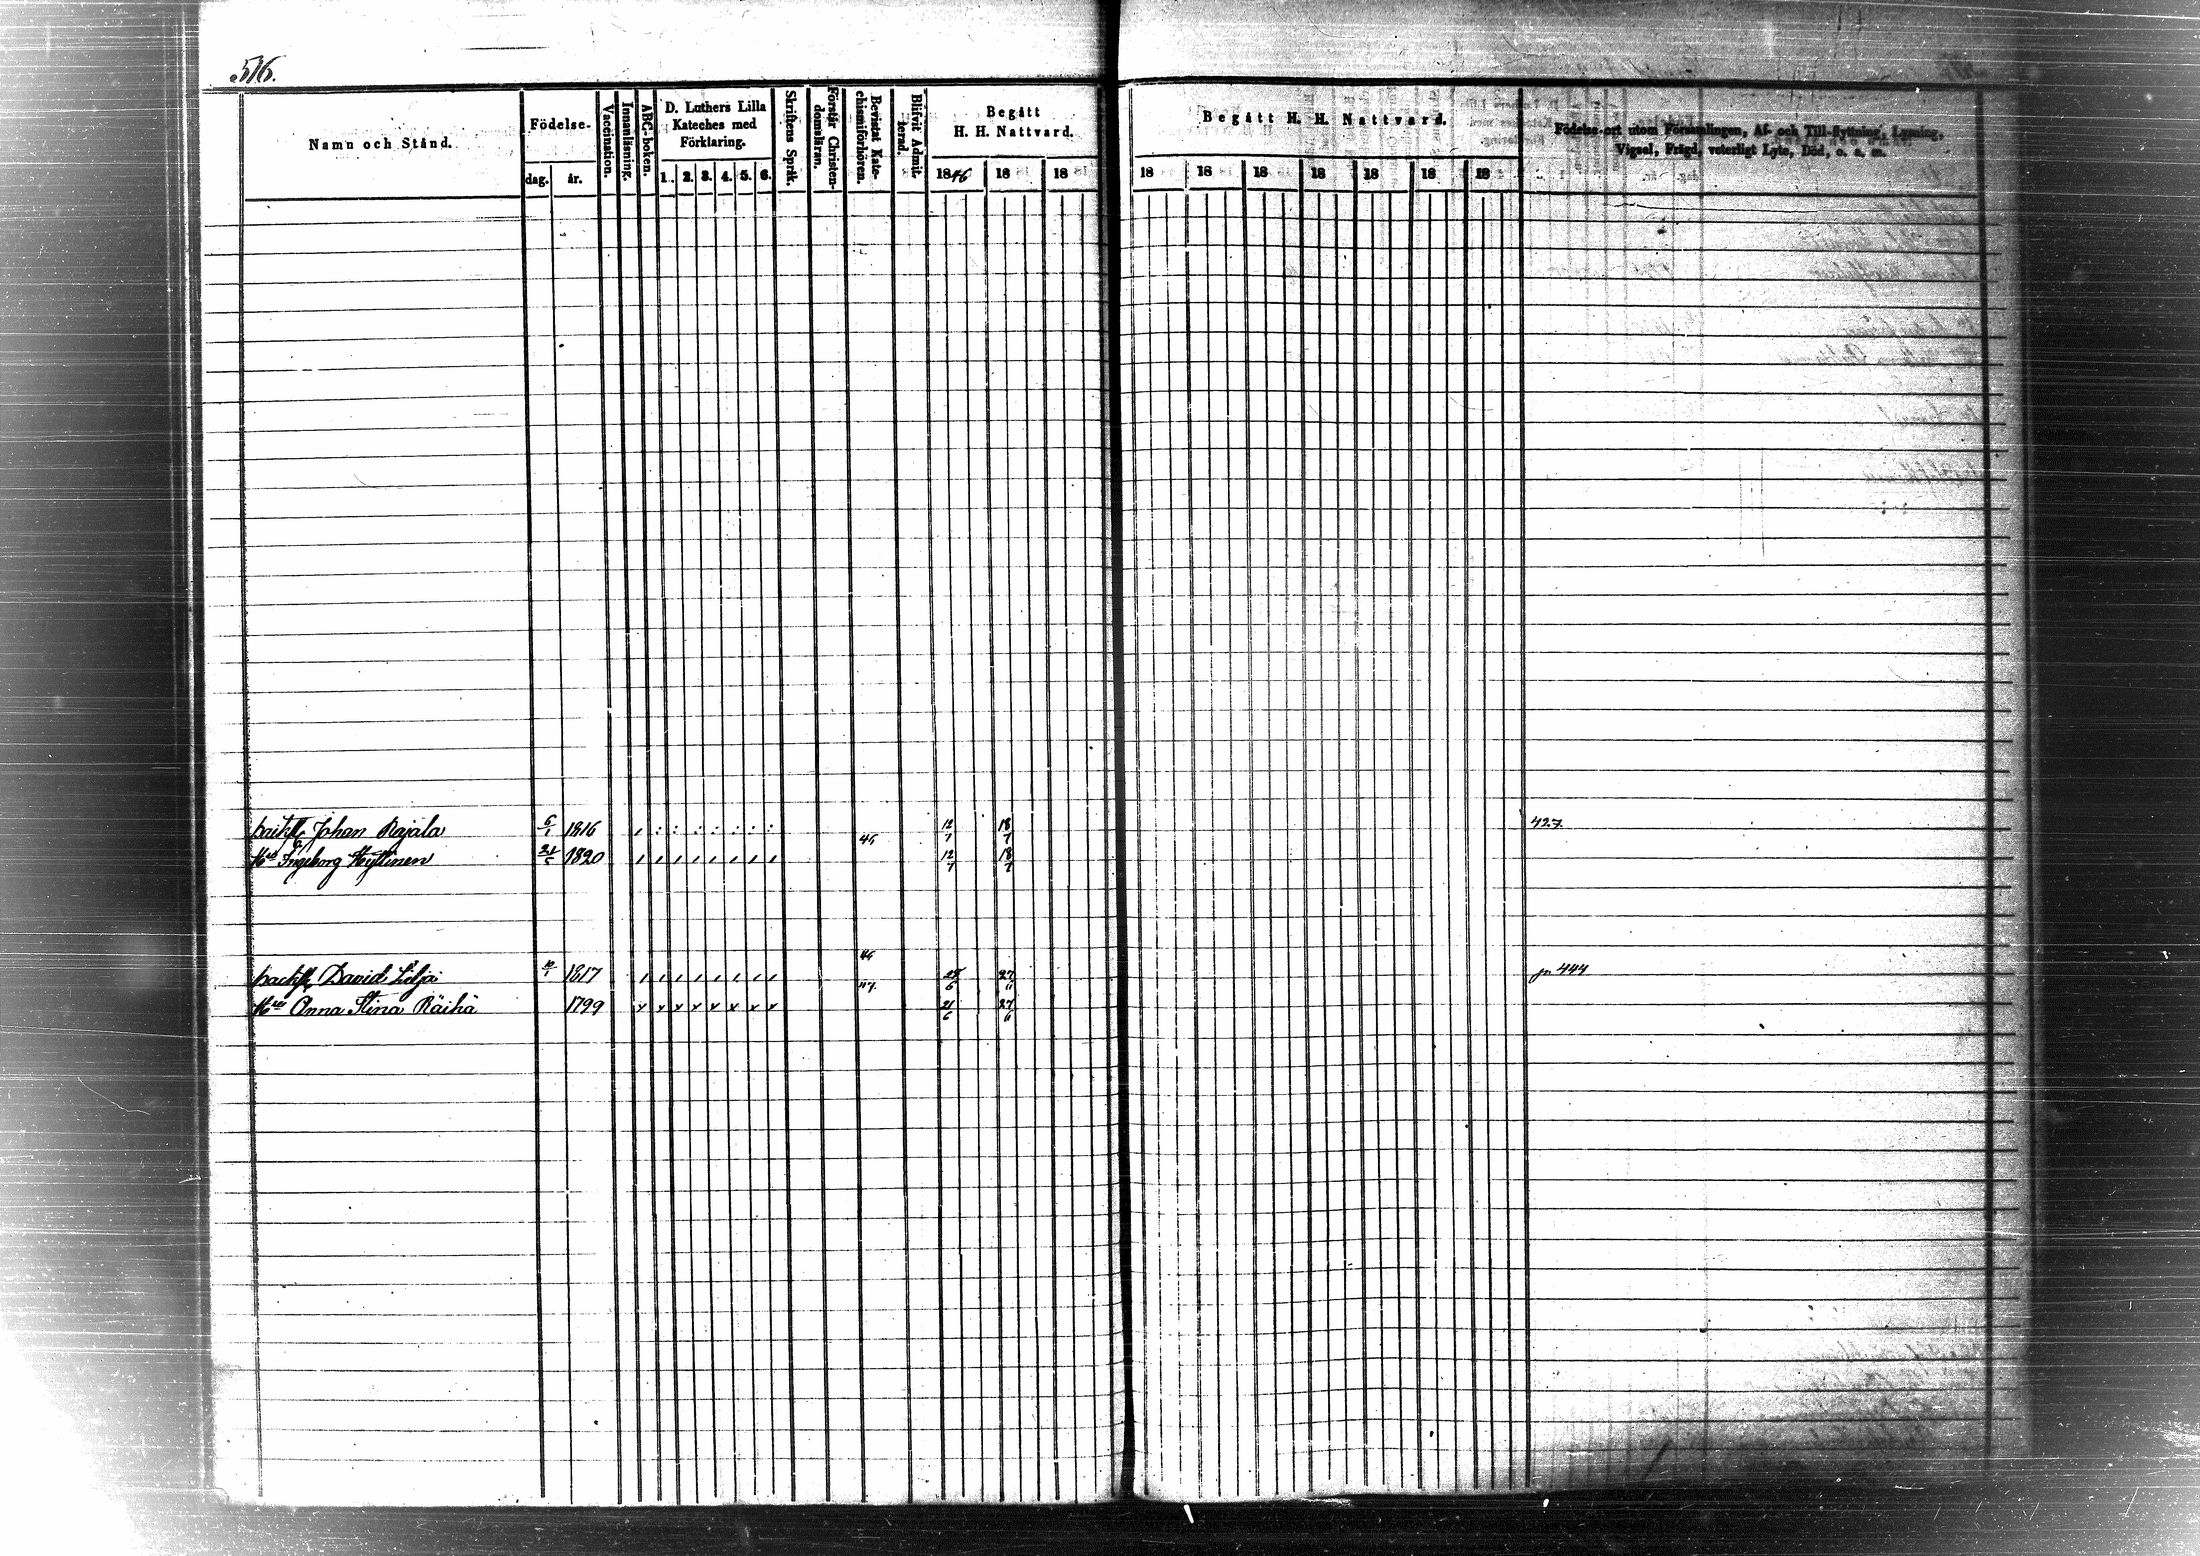 516.
Namn och Stånd.
Födelse-
dag. år.
Vaccination.
Innanläsning.
ABC-boken.
D. Luthers Lilla
Kateches med
Förklaring.
1. 2. 3. 4. 5. 6.
Skriftens Språk.
Förstår Christen-
domsläran.
Bevistat Kate-
chismiförhören.
Blifvit Admit-
terad.
Begått
H. H. Nattvard.
1846 18 18
Begått H. H. Nattvard.
18 18 18 18 18 18 18
Födelse-ort utom Församlingen, Af- och Till-flyttning, Lysning,
Vigsel, Frägd, veterligt Lyte, Död, o. s. m.
Johan Rajala 6/1 1816 12/7 18/7 427.
46
Ingeborg 1820 12/7 18/7
46
David Lilja 10/1 1817 6 27/11 444
47.
Anna Stina Räihä 1799 21/6 27